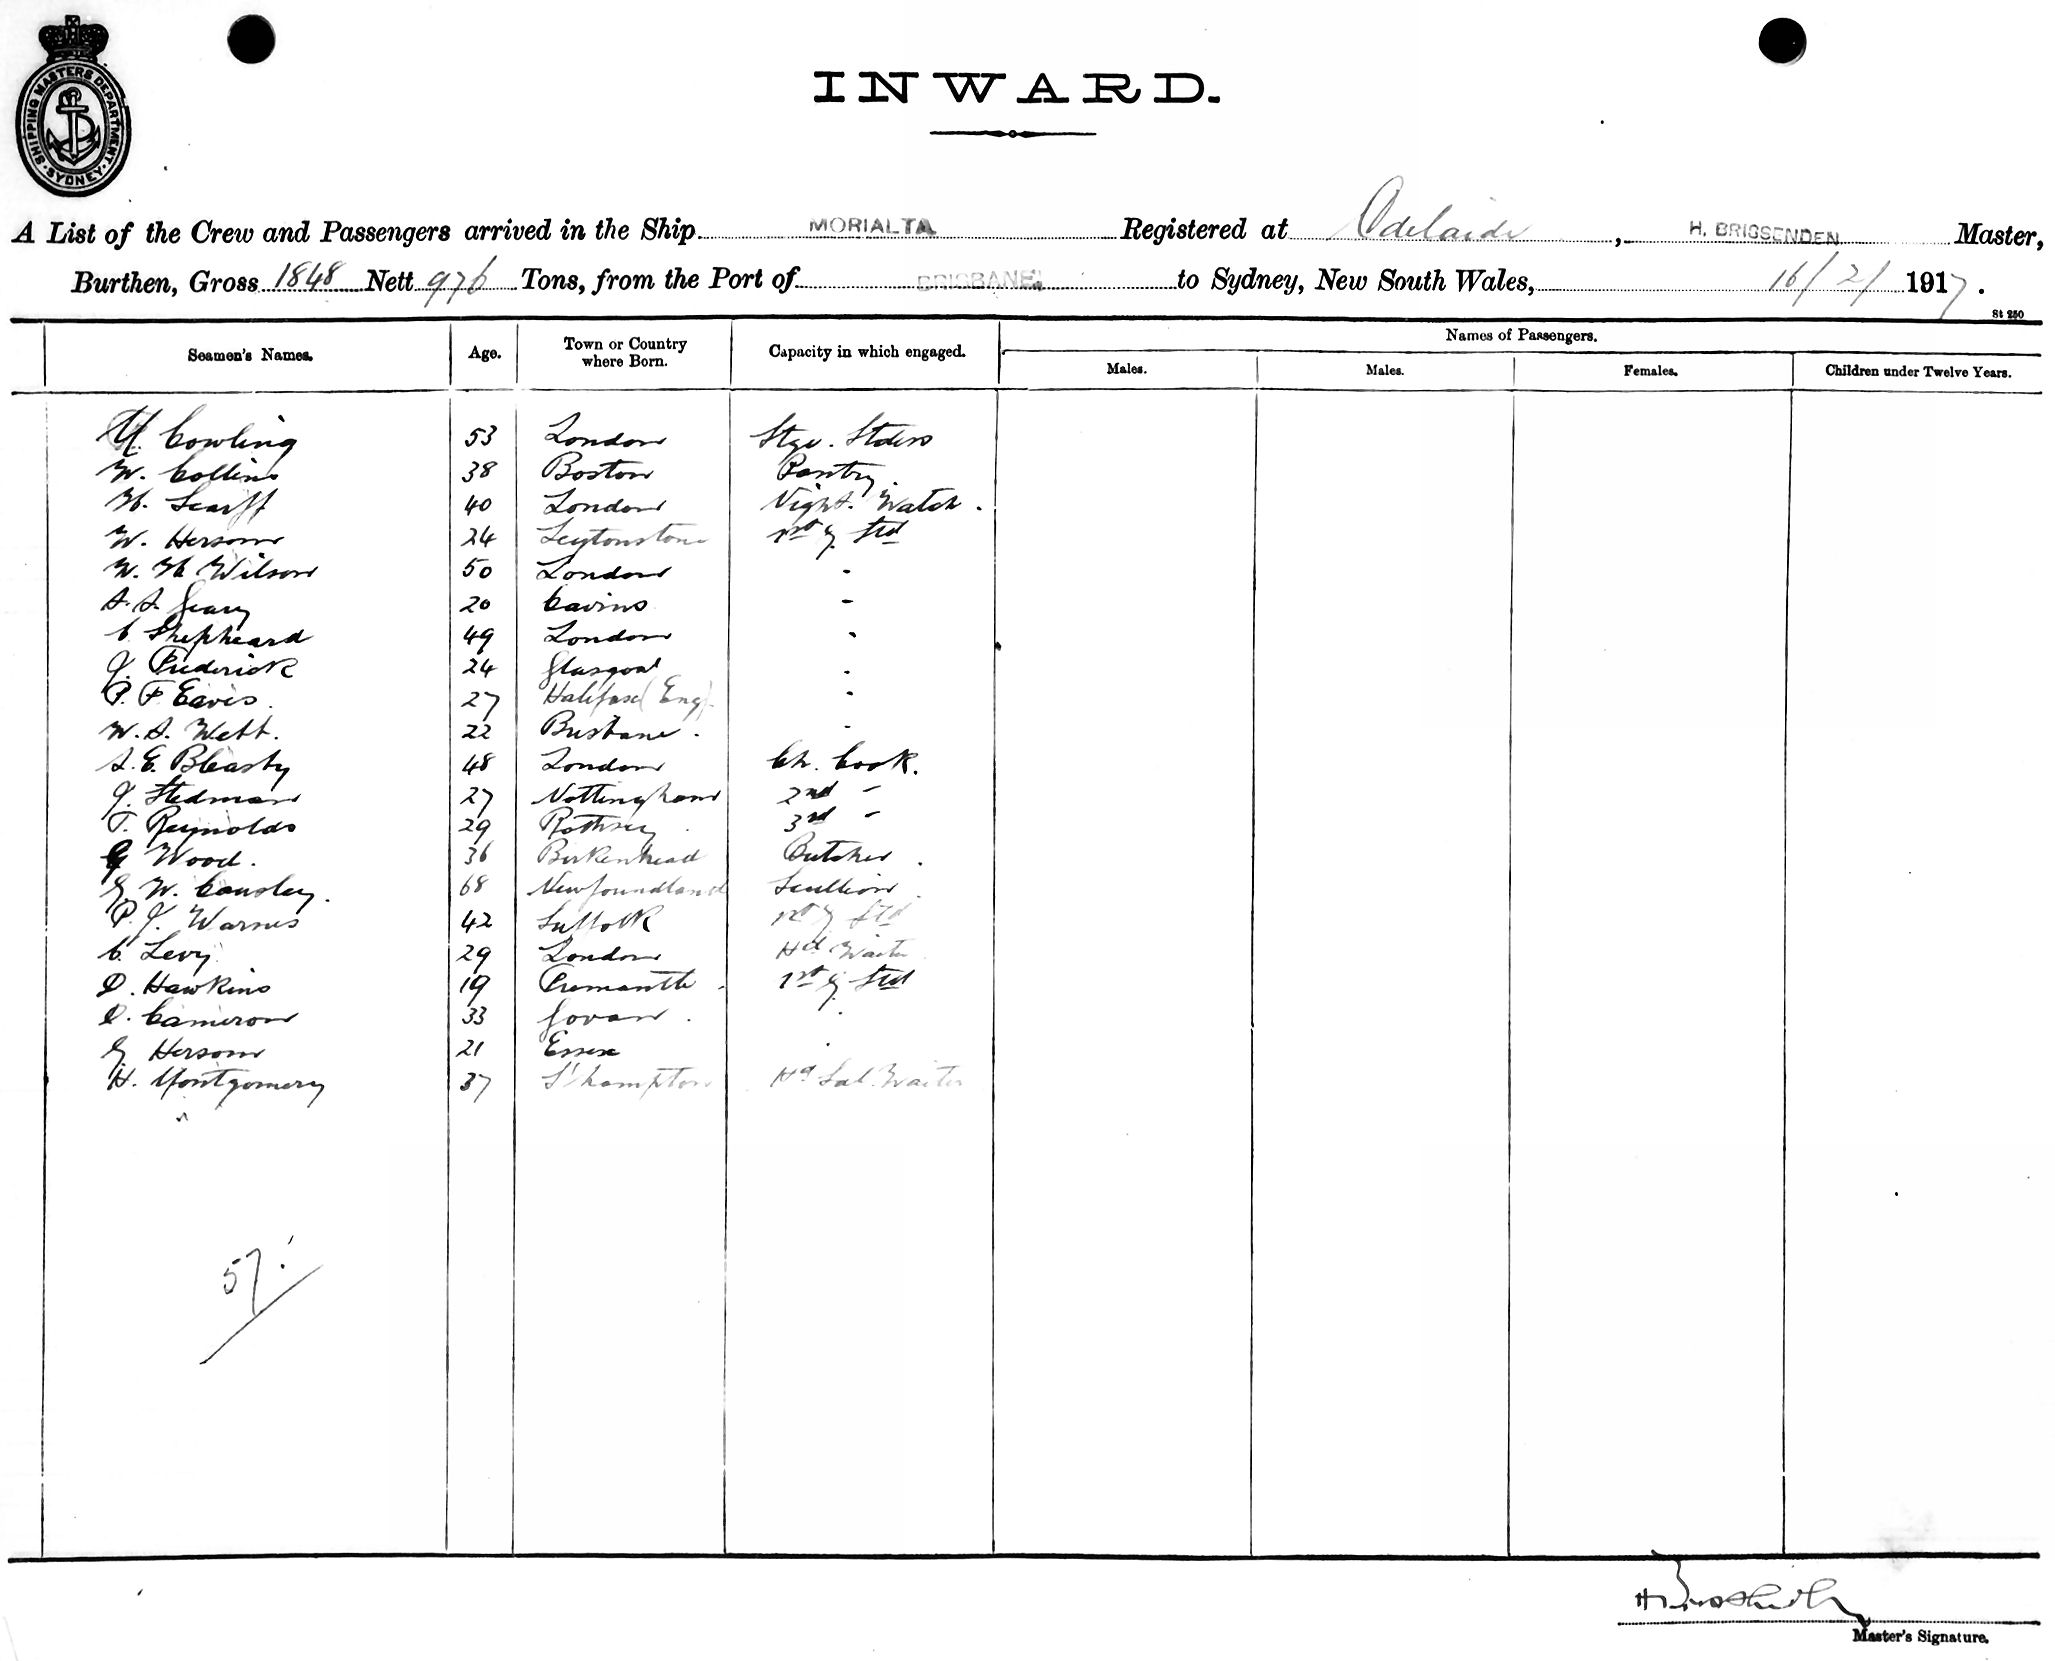 SHIPPING MASTERS DEPARTMENT · SYDNEY ·
INWARD.
A List of the Crew and Passengers arrived in the Ship MORIALTA Registered at Adelaide, H. BRISSENDEN Master,
Burthen, Gross 1848 Nett 976 Tons, from the Port of BRISBANE to Sydney, New South Wales, 16/2/1917.
St 250
Seamen's Names. Age. Town or Country where Born. Capacity in which engaged. Names of Passengers.
Males. Males. Females. Children under Twelve Years.
Cowling 53 London
W. Collins 38 Boston Pantry
Scarff 40 London Night Watch.
W. Hersom 24 Leytonstone
W. H Wilson 50 London -
A. A. Geary 20 Cairns -
C Shepheard 49 London -
J. Frederick 24 Glasgow -
P. F Eaves. 27 Halifax (Eng). -
W. A. Webb. 22 Brisbane. -
A. E. Bleasby 48 London Ch. Cook.
J. Stedman 27 Nottingham 2nd -
T. Reynolds 29 Rothsey 3rd -
G Wood. 36 Birkenhead Butcher.
G. W. Cousley. 68 Newfoundland Scullion
P. J. Warnes 42 Suffolk
C. Levy 29 London Hd Waiter
D. Hawkins 19 Fremantle.
D. Cameron 33 Govan.
G Hersom 21 Essex
H. Montgomery 37 S'hampton Hd Sal. Waiter
57.
Master's Signature.